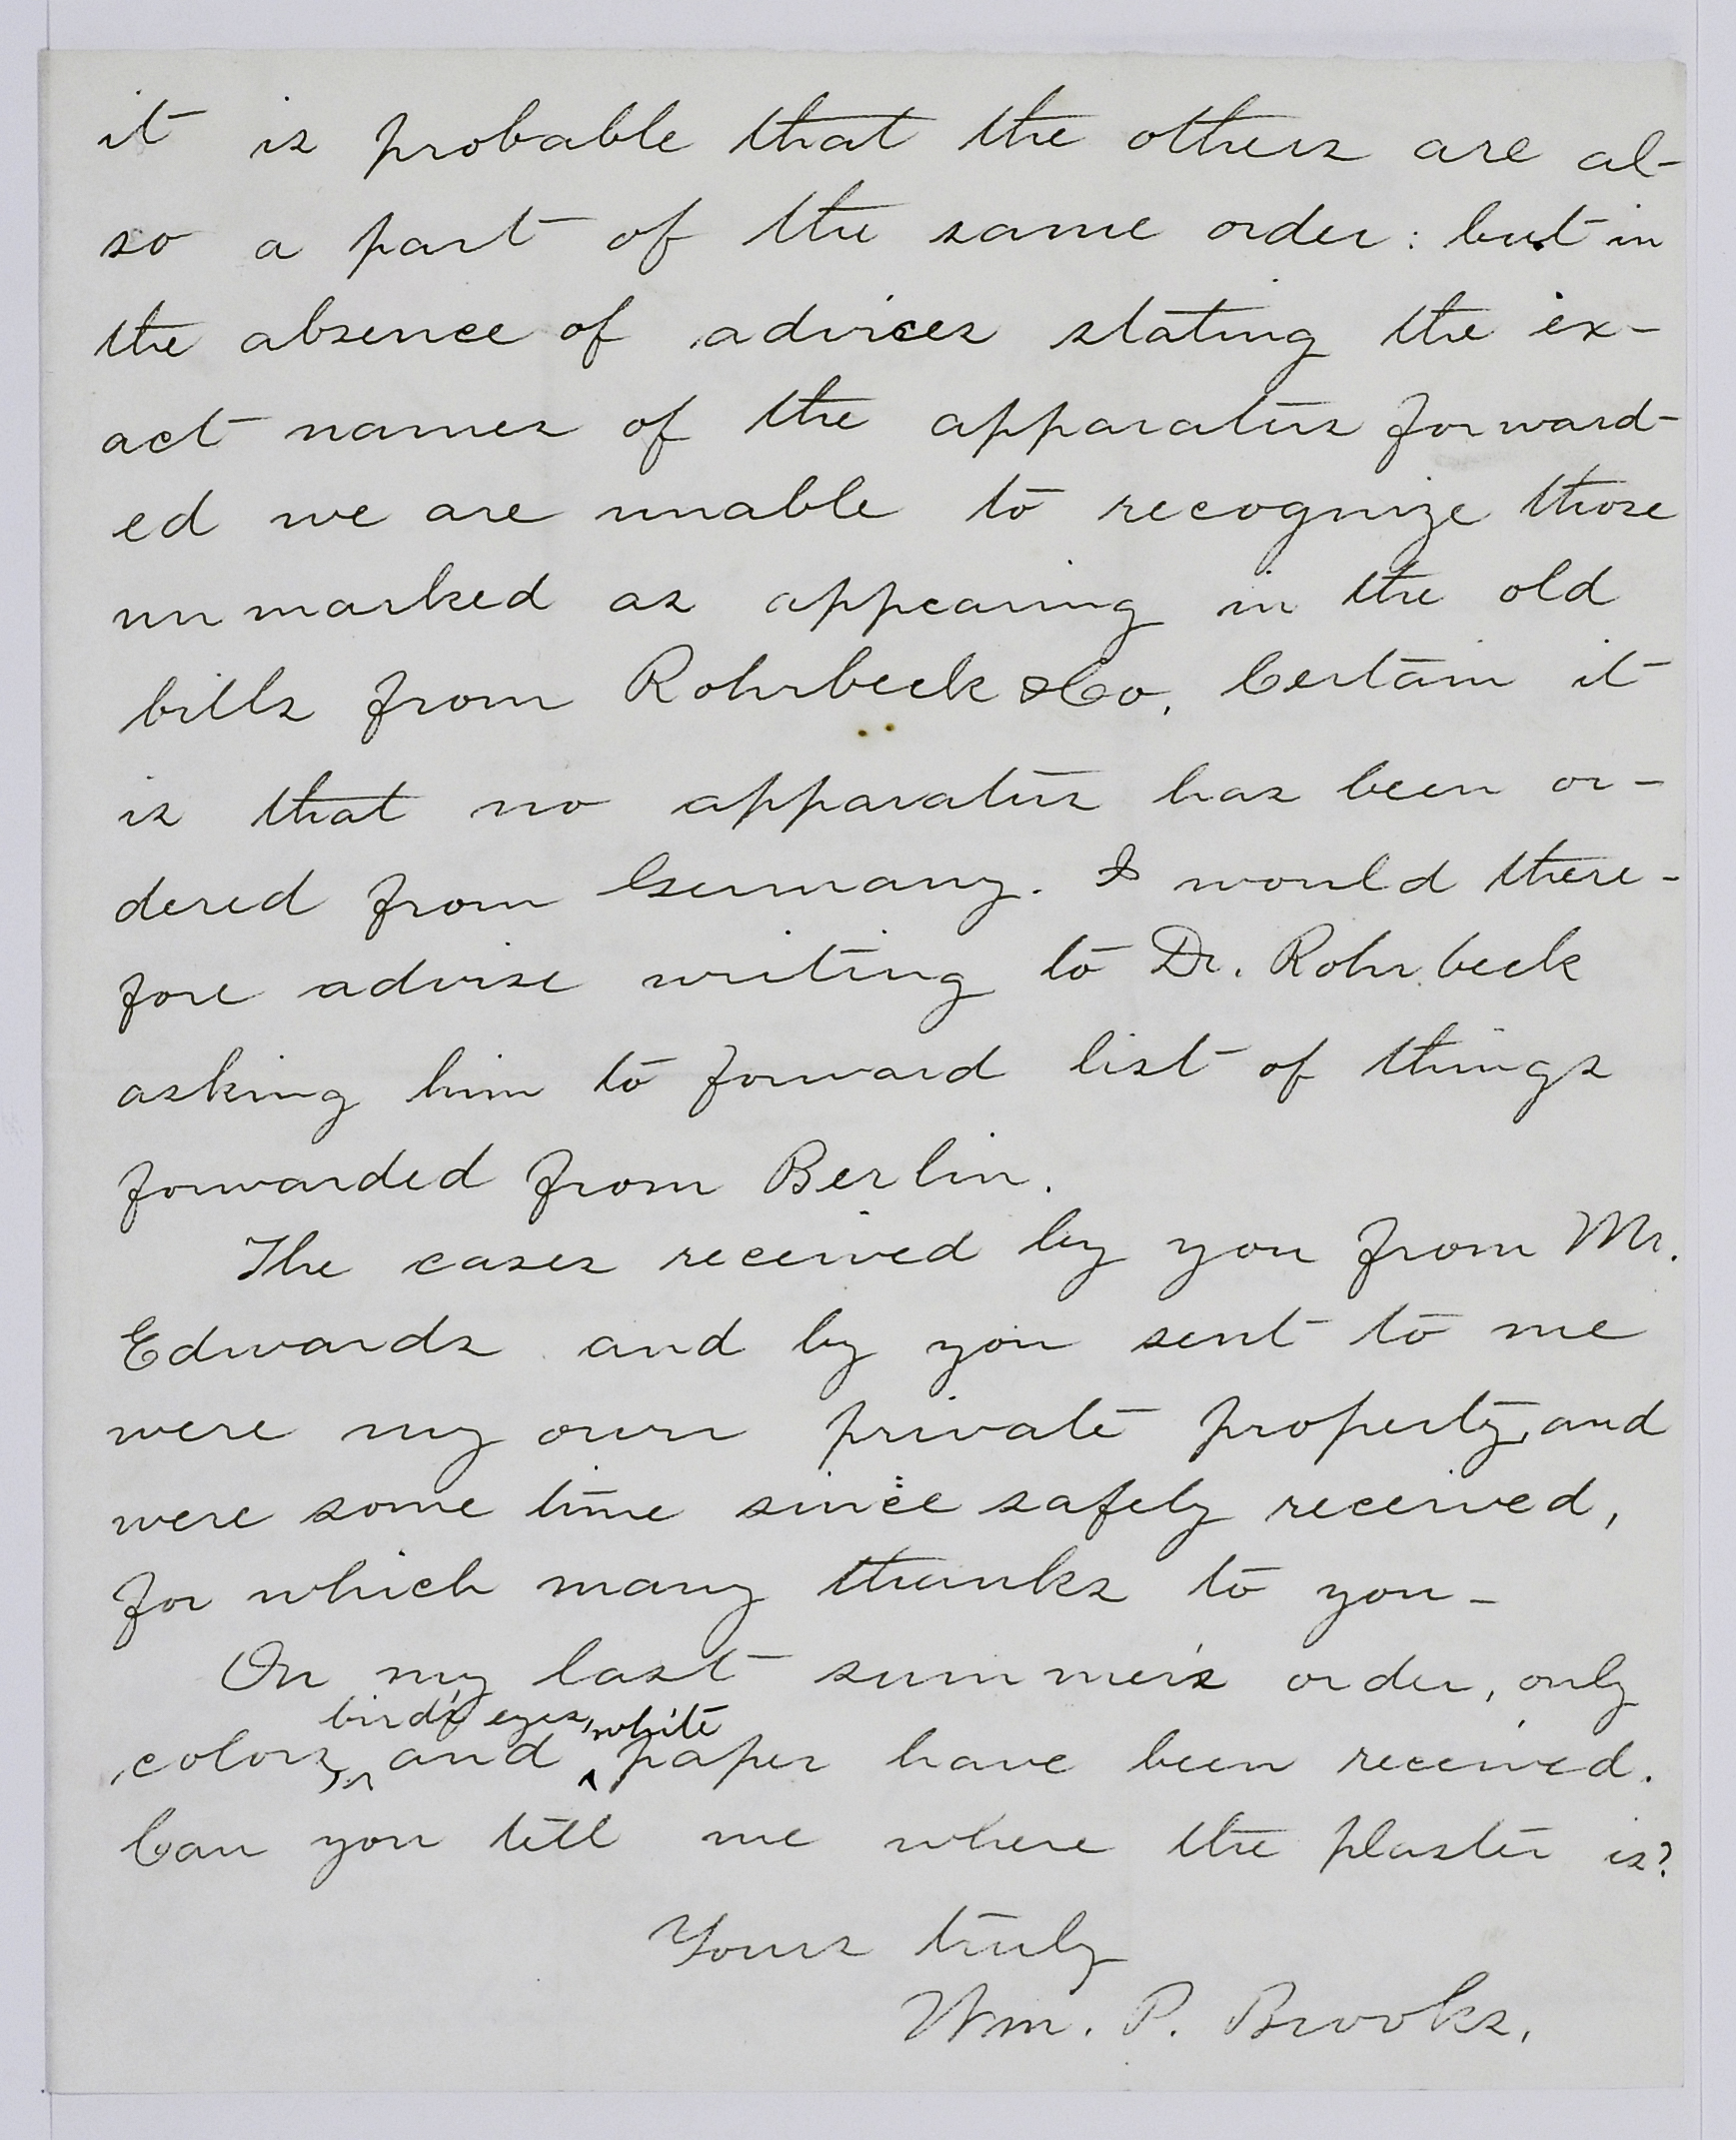 it is probable that the others are al-
so a part of the same order: but in
the absence of advices stating the ex-
act names of the apparatus forward-
ed we are unable to recognize those
unmarked as appearing in the old
bills from Rohrbeck & Co. Certain it
is that no apparatus has been or-
dered from Germany. I would there-
fore advise writing to Dr. Rohrbeck
asking him to forward list of things
forwarded from Berlin.
The cases received by you from Mr.
Edwards and by you sent to me
were my own private property, and
were some time since safely received,
for which many thanks to you-
On my last summer's order, only
bird's eyes, white
colors, and paper have been received.
Can you tell me where the plaster is?
Yours truly
Wm. P. Brooks.